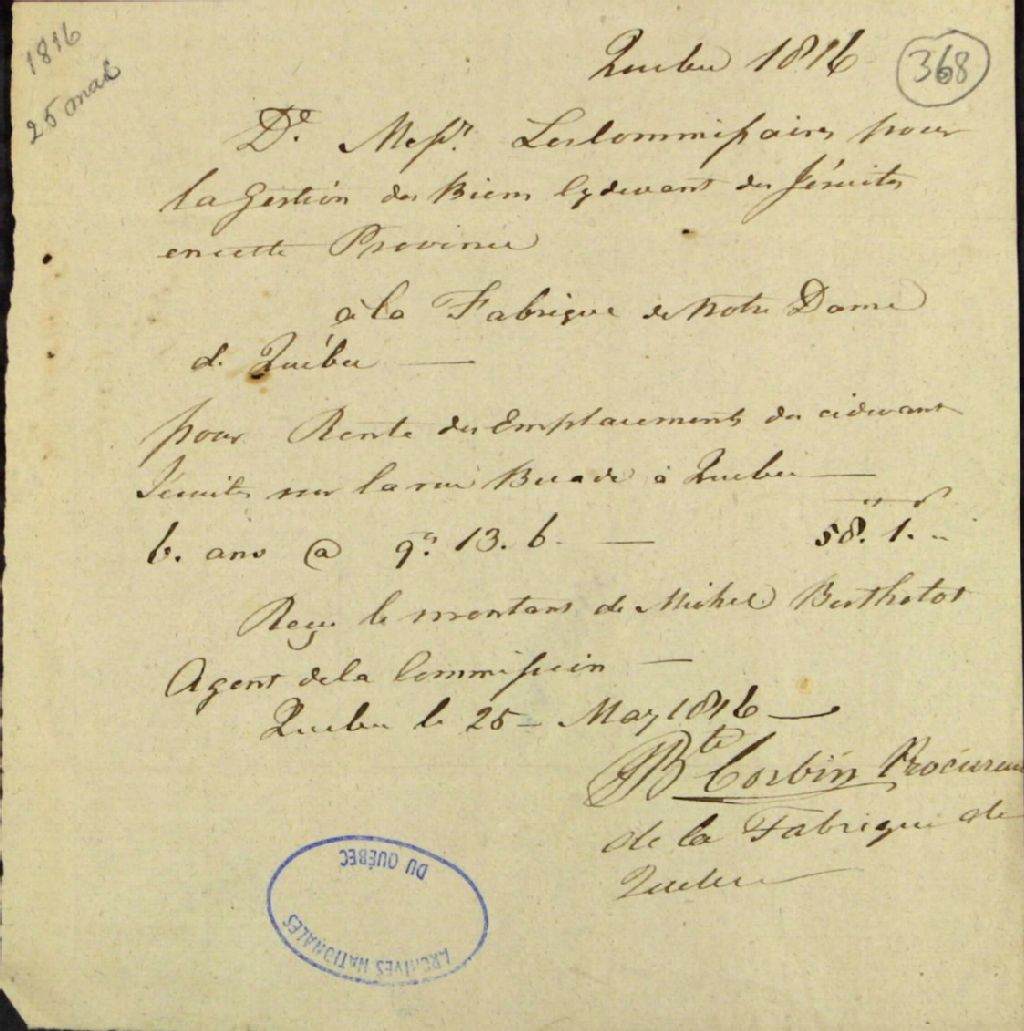 1816
25 mai
Quebec 1816
368
De. Messrs. Les Commissaires pour
la Gestion des Biens Cydevant des Jésuites
en cette Province
à la Fabrique de Notre Dame
de Québec —
pour Rente des Emplacements des cidevant
Jésuites sur la rue Buade à Quebec —
6. ans @ 9". 13. 6. — 58". 1. "
Reçu le montant de Michel Berthelot
Agent de la Commission —
Quebec le 25 — May 1816 —
JBte Corbin Procureur
de la Fabrique de
Quebec
ARCHIVES NATIONALES
DU QUÉBEC